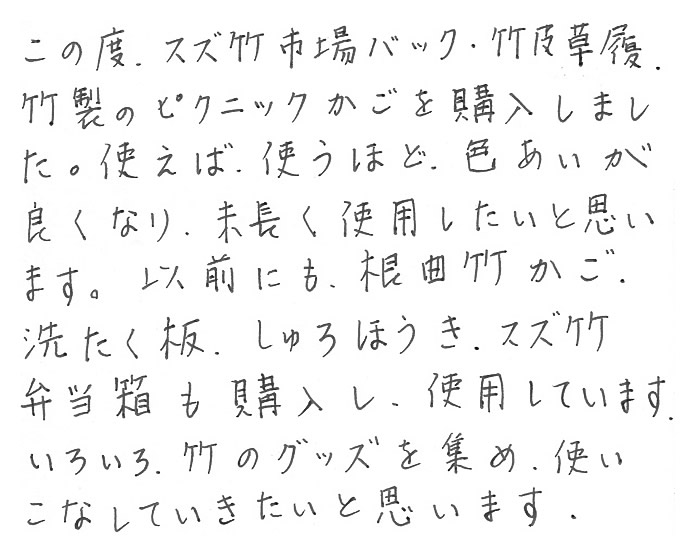 この度、スズ竹市場バック・竹皮草履、
竹製のピクニックかごを購入しまし
た。使えば、使うほど、色あいが
良くなり、末長く使用したいと思い
ます。以前にも、根曲竹かご、
洗たく板、しゅろほうき、スズ竹
弁当箱も購入し、使用しています。
いろいろ、竹のグッズを集め、使い
こなしていきたいと思います。